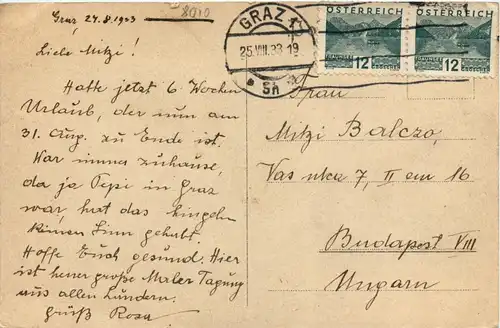 Graz, 24.8.1933
8010
Liebe Mitzi!
Hatte jetzt 6 Wochen
Urlaub, der nun am
31. Aug. zu Ende ist.
War immer zuhause,
da ja Pepi in Graz
war, hat das
keinen Sinn gehabt.
Hoffe Euch gesund. Hier
ist heuer große Maler Tagung
aus allen Ländern.
Gruß Rosa
GRAZ 1
25.VIII.33.19
* 5h *
ÖSTERREICH
12
GROSCHEN
ÖSTERREICH
12
GROSCHEN
Frau
Mitzi Balczo
Vas utca 7, II em 16
Budapest VIII
Ungarn